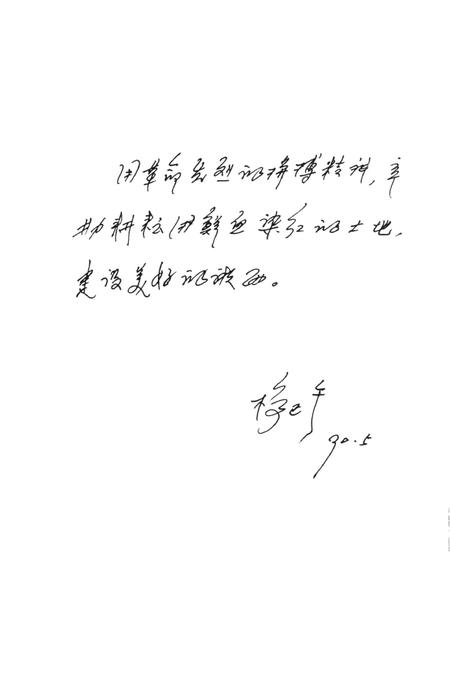 用革命先烈的拼搏精神,辛
勤耕耘用鲜血染红的土地,
建设美好的陕西。
90.5